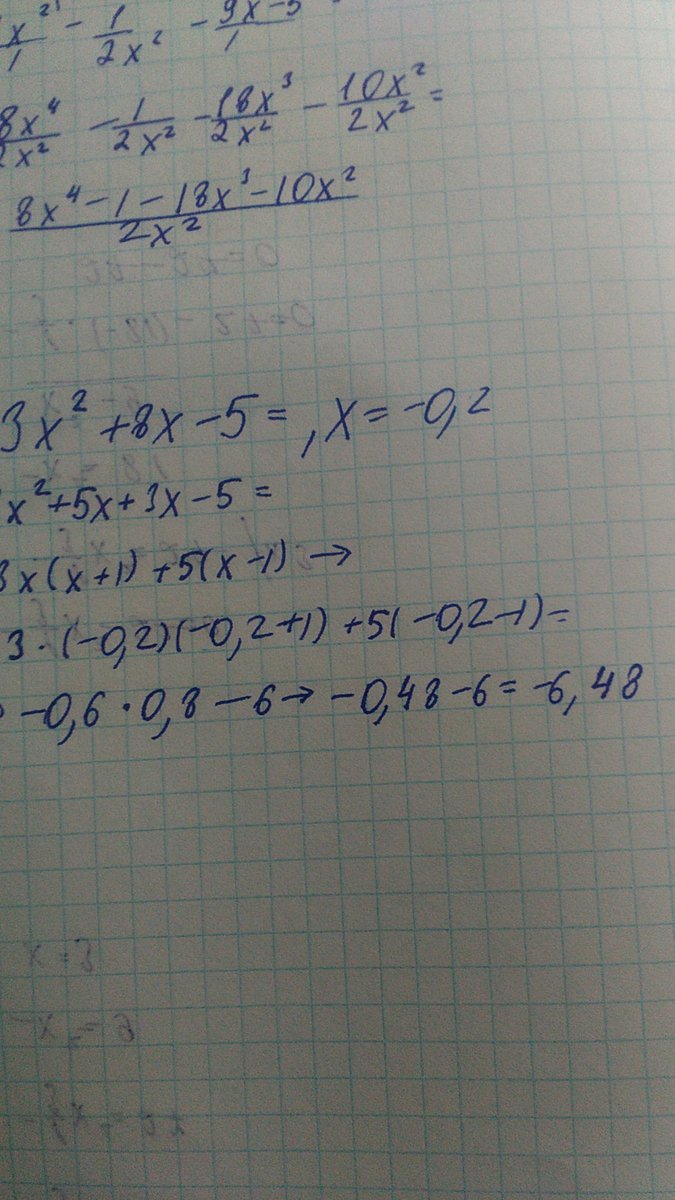 x²/1 - 1/2x² - 9x-5/1
8x⁴/2x² - 1/2x² - 18x³/2x² - 10x²/2x² =
8x⁴-1-18x³-10x²/2x²
3x²+8x-5= , x=-0,2
x²+5x+3x-5=
3x(x+1)+5(x-1)→
3·(-0,2)(-0,2+1)+5(-0,2-1)=
-0,6·0,8-6→-0,48-6=-6,48
x=3